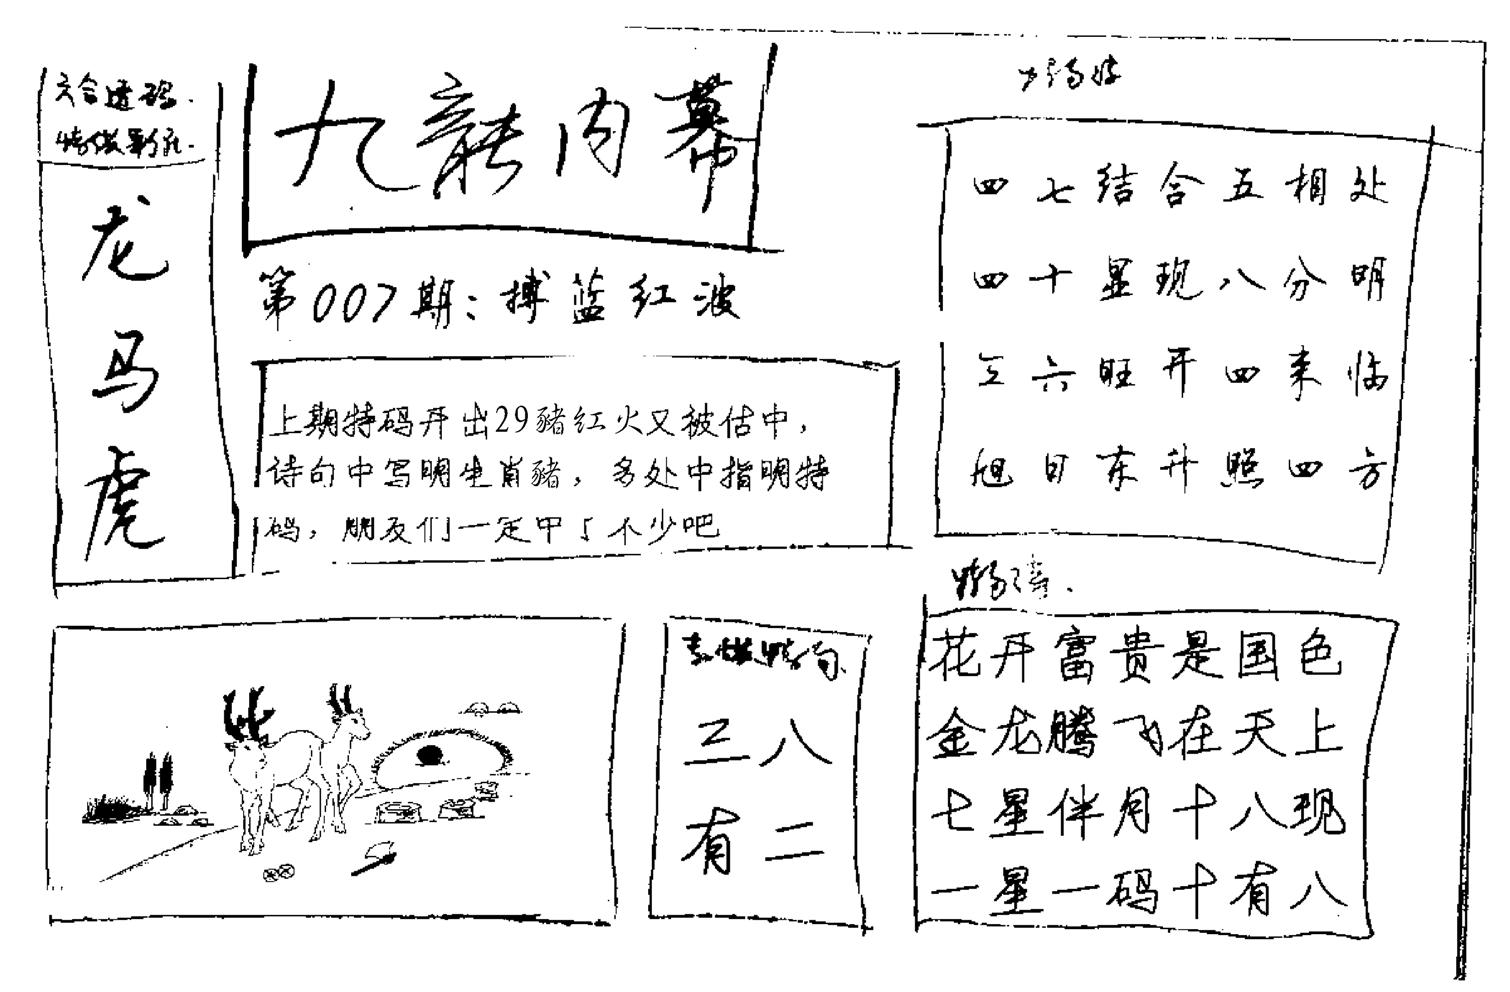 六合透码
龙
马
虎
九龍内幕
第007期：搏蓝红波
上期特码开出29豬红火又被估中，
诗句中写明生肖豬，多处中指明特
码，朋友们一定中了不少吧
四七结合五相处
四十显现八分明
三六旺开四来临
旭日东升照四方
花开富贵是国色
金龙腾飞在天上
七星伴月十八现
一星一码十有八
三八
有二